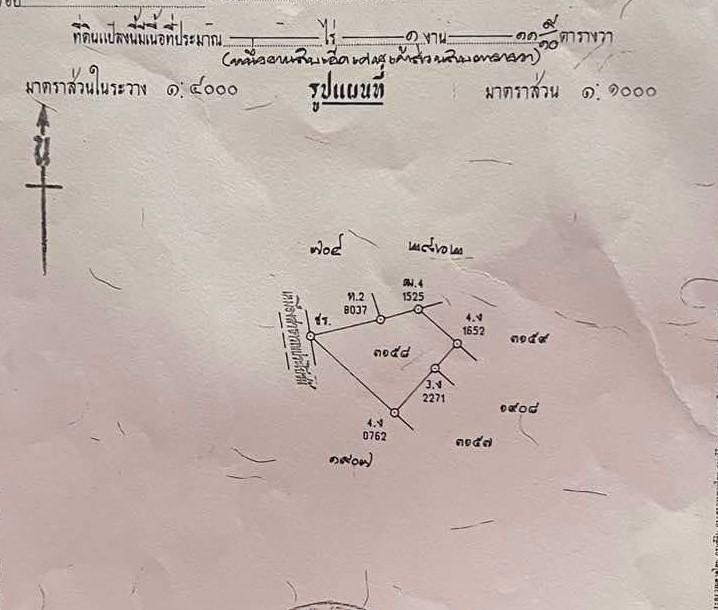 ที่ดินแปลงนี้มีเนื้อที่ประมาณ ไร่ ๑ งาน ๑๑ ๙/๑๐ ตารางวา
(หนึ่งงานสิบเอ็ดเศษเก้าส่วนสิบตารางวา)
มาตราส่วนในระวาง ๑: ๔๐๐๐ รูปแผนที่ มาตราส่วน ๑: ๑๐๐๐
น
๗๐๔ ๒๙๖๒
ท.2
8037
ฒ.4
1525
ชร.
4.ง
1652
๓๑๕๘
๓๑๕๙
3.ง
2271
๑๙๐๘
4.ง
0762
๓๑๕๗
๑๙๐๗